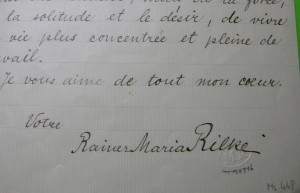 la solitude et le désir, de vivre
vie plus concentrée et pleine de
vail.
Je vous aime de tout mon cœur.
Votre
Rainer Maria Rilke